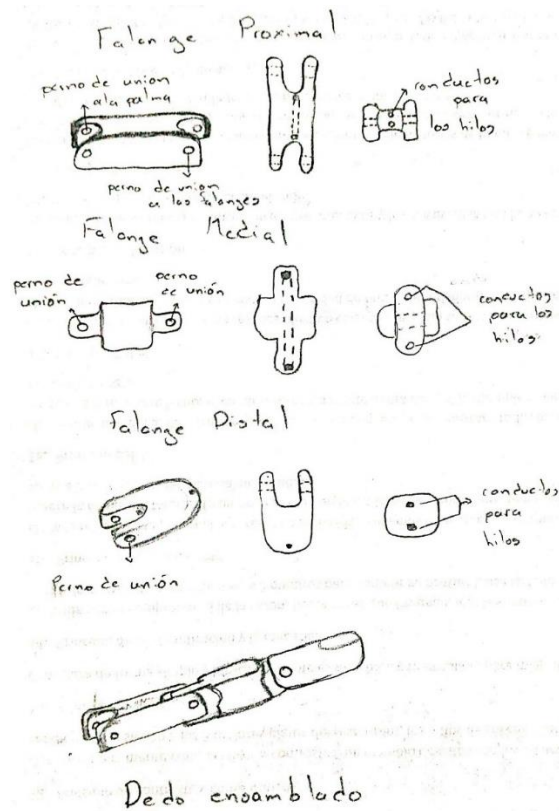 Falange Proximal
perno de union
a la palma
conductos
para
los hilos
perno de union
en las falanges
Falange Medial
perno de
unión
perno
de unión
conductos
para los
hilos
Falange Distal
conductos
para
hilos
Perno de unión
Dedo ensamblado